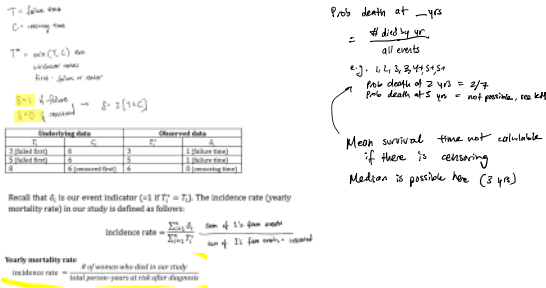 T = failure time
C = censoring time
T* = min(T, C) ex
whichever comes
first - failure or censor
δ=1 if failure
δ=0 if censored → δ = I[T≤C]
Underlying data Observed data
Tᵢ Cᵢ Tᵢ* δᵢ
3 (failed first) 6 3 1 (failure time)
5 (failed first) 6 5 1 (failure time)
8 6 (censored first) 6 0 (censoring time)
Recall that δᵢ is our event indicator (=1 if Tᵢ* = Tᵢ). The incidence rate (yearly
mortality rate) in our study is defined as follows:
incidence rate = Σδᵢ / ΣTᵢ* sum of 1's from events
Yearly mortality rate
incidence rate = # of women who died in our study
total person-years at risk after diagnosis
Prob death at __ yrs
= # died by yr
all events
e.g. 1, 2, 3, 3, 4+, 5+, 5+
Prob death at 2 yrs = 2/7
Prob death at 5 yrs = not possible, see left
Mean survival time not calculable
if there is censoring
Median is possible here (3 yrs)